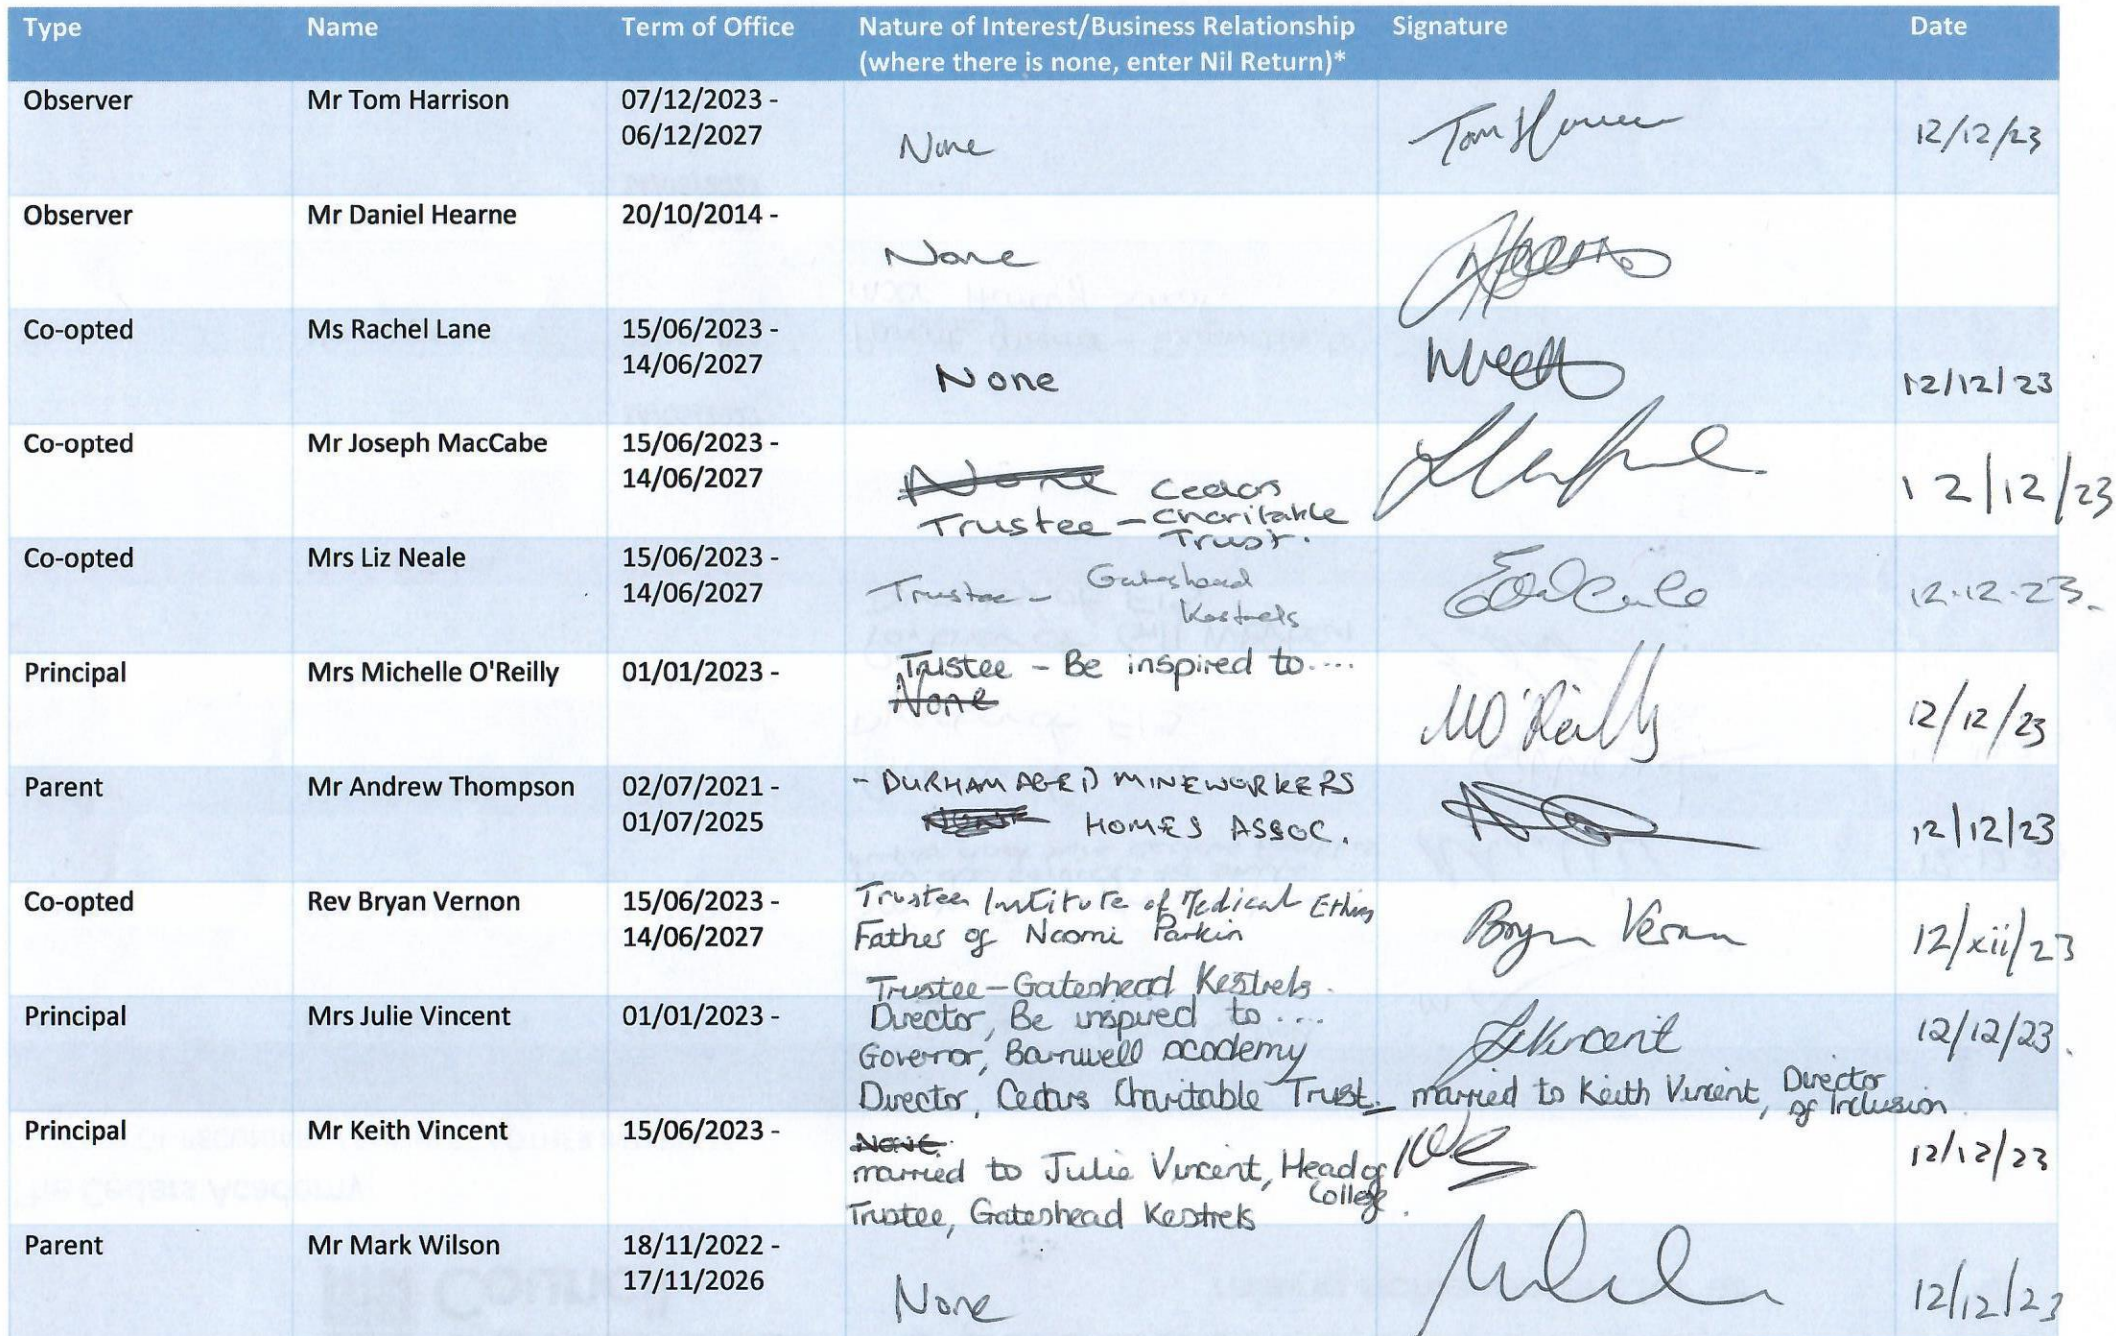 Type Name Term of Office Nature of Interest/Business Relationship Signature Date
(where there is none, enter Nil Return)*
Observer Mr Tom Harrison 07/12/2023 -
06/12/2027 None 12/12/23
Observer Mr Daniel Hearne 20/10/2014 -
None
Co-opted Ms Rachel Lane 15/06/2023 -
14/06/2027 None 12/12/23
Co-opted Mr Joseph MacCabe 15/06/2023 -
14/06/2027 None Cedars 12/12/23
Trustee - Charitable
Trust.
Co-opted Mrs Liz Neale 15/06/2023 -
14/06/2027 Trustee - Gateshead 12.12.23.
Kestrels
Principal Mrs Michelle O'Reilly 01/01/2023 - Trustee - Be inspired to....
None MO'Reilly 12/12/23
Parent Mr Andrew Thompson 02/07/2021 - - DURHAM AGED MINEWORKERS
01/07/2025 HOMES ASSOC. 12/12/23
Co-opted Rev Bryan Vernon 15/06/2023 - Trustee Institute of Medical Ethics
14/06/2027 Father of Naomi Parkin Bryan Vernon 12/xii/23
Trustee - Gateshead Kestrels.
Principal Mrs Julie Vincent 01/01/2023 - Director, Be inspired to.... 12/12/23.
Governor, Barnwell academy
Director, Cedars Charitable Trust - married to Keith Vincent, Director
of Inclusion
Principal Mr Keith Vincent 15/06/2023 - None
married to Julie Vincent, Head of 12/12/23
College.
Trustee, Gateshead Kestrels
Parent Mr Mark Wilson 18/11/2022 -
17/11/2026 None 12/12/23